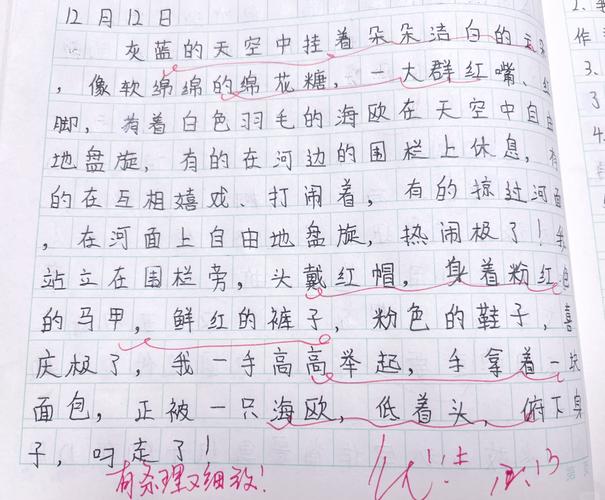 12月12日
灰蓝的天空中挂着朵朵洁白的云朵
，像软绵绵的绵花糖，一大群红嘴、红
脚，有着白色羽毛的海欧在天空中自由
地盘旋，有的在河边的围栏上休息，有
的在互相嬉戏、打闹着，有的掠过河面
，在河面上自由地盘旋，热闹极了！我
站立在围栏旁，头戴红帽，身着粉红色
的马甲，鲜红的裤子，粉色的鞋子，喜
庆极了，我一手高高举起，手拿着一块
面包，正被一只海欧，低着头，俯下身
子，叼走了！
有条理又细致！
优！
12.13
2、
作
3、
了
4、